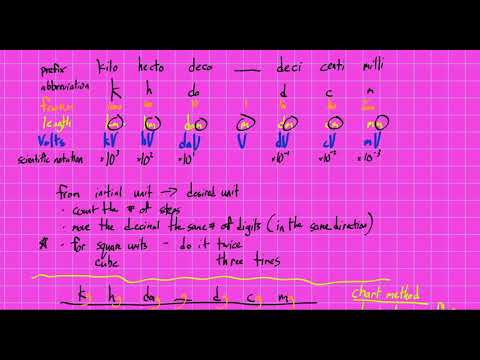 prefix kilo hecto deca ___ deci centi milli
abbreviation k h da d c m
length km hm dam m dm cm mm
Volts kV hV daV V dV cV mV
scientific notation ×10³ ×10² ×10¹ ×10⁻¹ ×10⁻² ×10⁻³
from initial unit → desired unit
· count the # of steps
· move the decimal the same # of digits (in the same direction)
· for square units - do it twice
cube three times
kg hg dag g dg cg mg
chart method